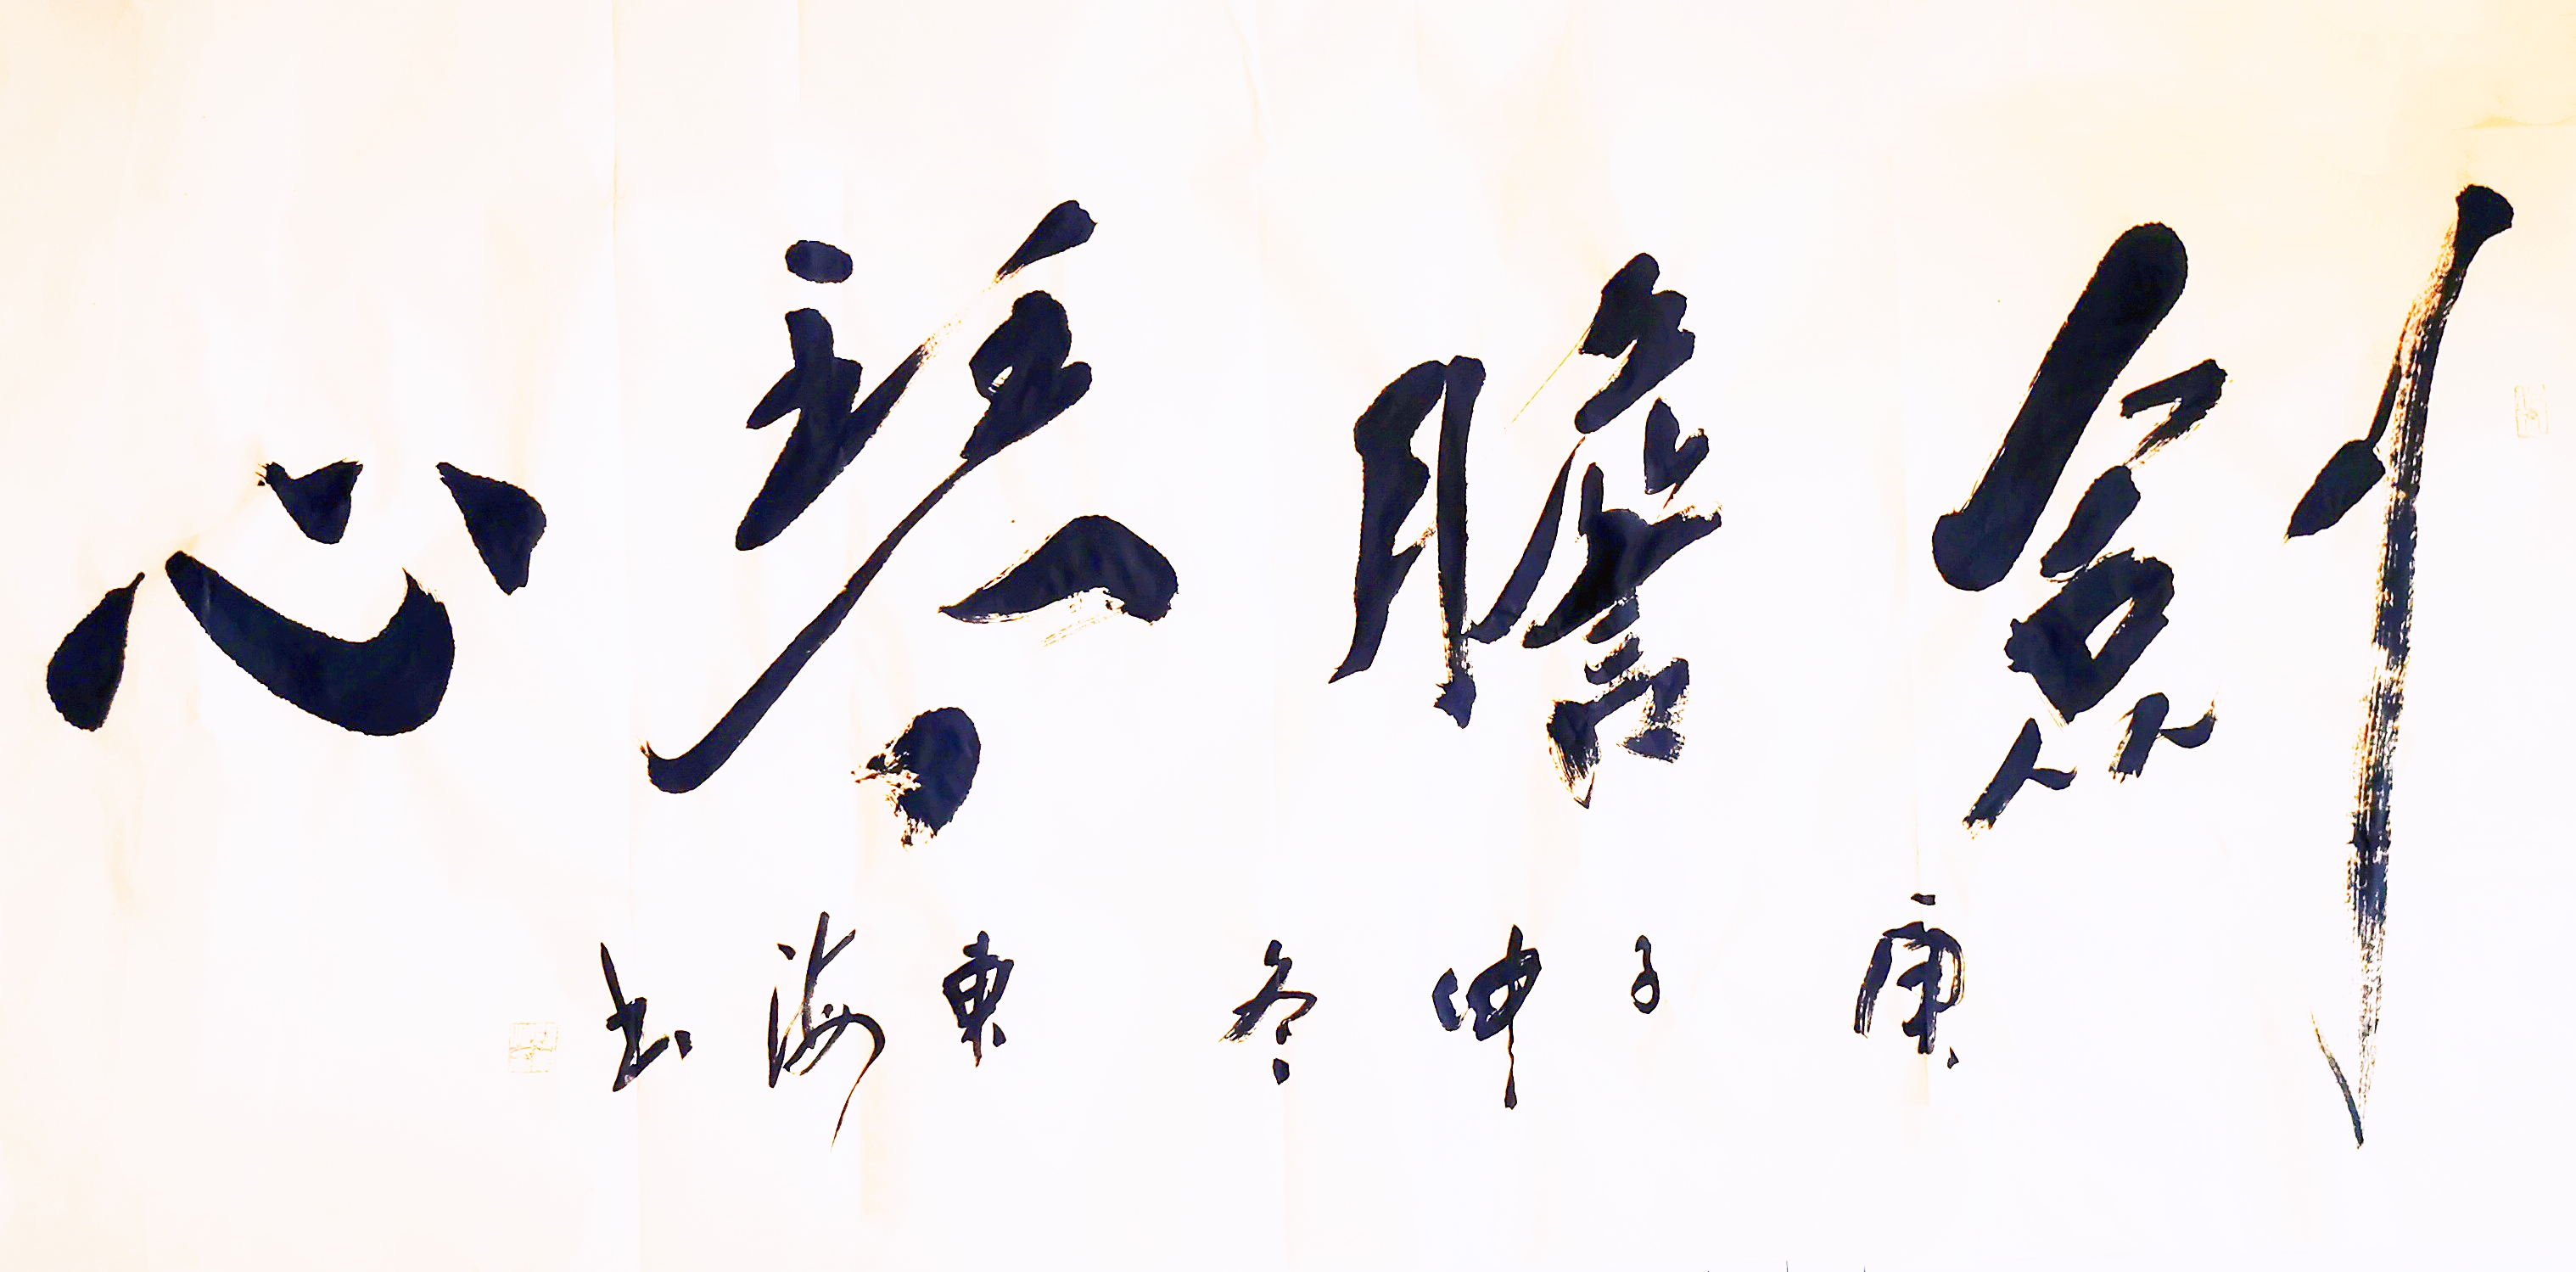 劍膽琴心
庚子仲冬 東海書